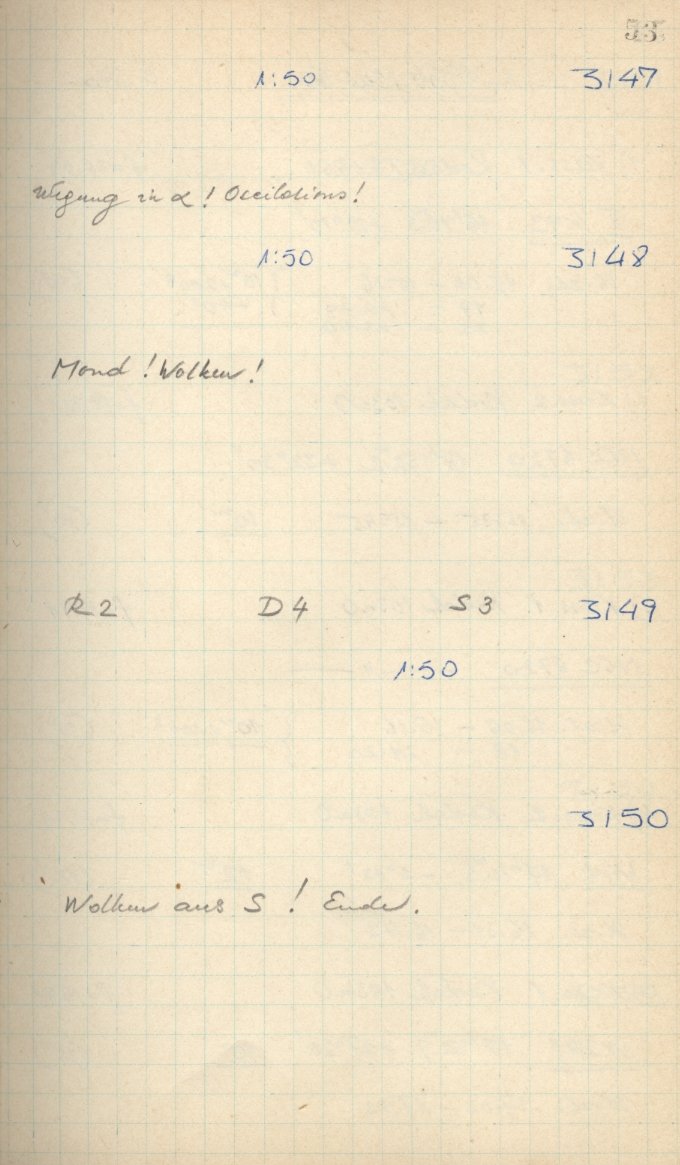 53.
1:50 3147
in α ! Occilations!
1:50 3148
Mond ! Wolken !
R 2 D 4 S 3 3149
1:50
3150
Wolken aus S ! Ende.